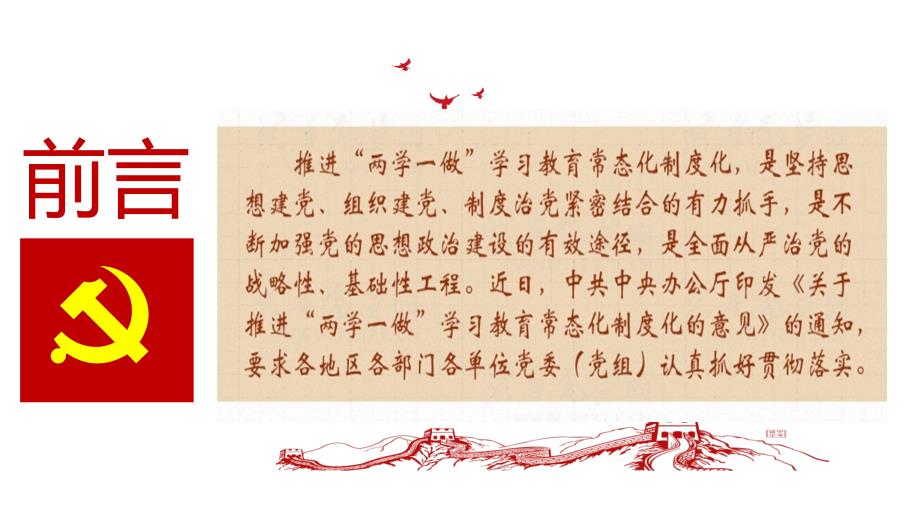 前言
推进“两学一做”学习教育常态化制度化，是坚持思
想建党、组织建党、制度治党紧密结合的有力抓手，是不
断加强党的思想政治建设的有效途径，是全面从严治党的
战略性、基础性工程。近日，中共中央办公厅印发《关于
推进“两学一做”学习教育常态化制度化的意见》的通知，
要求各地区各部门各单位党委（党组）认真抓好贯彻落实。